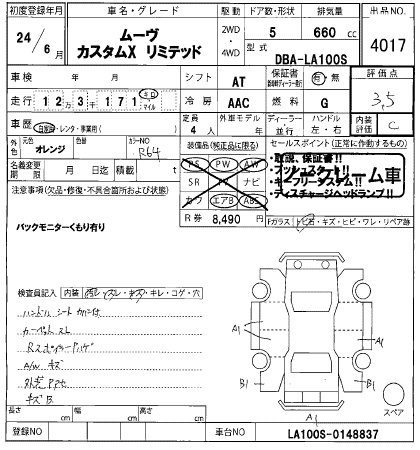 初度登録年月
24/6月
車名・グレード
ムーヴ
カスタムX リミテッド
駆動
2WD
・
4WD
ドア数・形状
5
排気量
660 cc
型式
DBA-LA100S
出品NO.
4017
車検
年 月
シフト
AT
保証書
有 無
評価点
3,5
走行
123171
キロ
マイル
冷房
AAC
燃料
G
車歴
自家用・レンタ・事業用( )
定員
4人
外車モデル
年
ディーラー
並行
ハンドル
左・右
内装
評価
C
外色
オレンジ
色替
カラーNO
R64
装備品(純正品に限る)
PS PW AW
SR ナビ
カワ エアB ABS
セールスポイント(正常に作動するもの)
・取説、保証書!!
・プッシュスタート!!
・キーフリーシステム!!
・ディスチャージヘッドランプ!!
クレーム車
名義変更
期限
月 日
積載
t
注意事項(欠品・修復・不具合箇所および状態)
バックモニターくもり有り
R券
8,490 円
Fガラス
・キズ・ヒビ・ワレ・リペア跡
検査員記入
内装
・スレ・キズ・キレ・コゲ・穴
ハンドル シート
カーペット スレ
A/W キズ
キズ B
A1
A1
A1
B1
B1
A1
スペア
長さ
cm
幅
cm
高さ
cm
登録NO
車台NO
LA100S-0148837